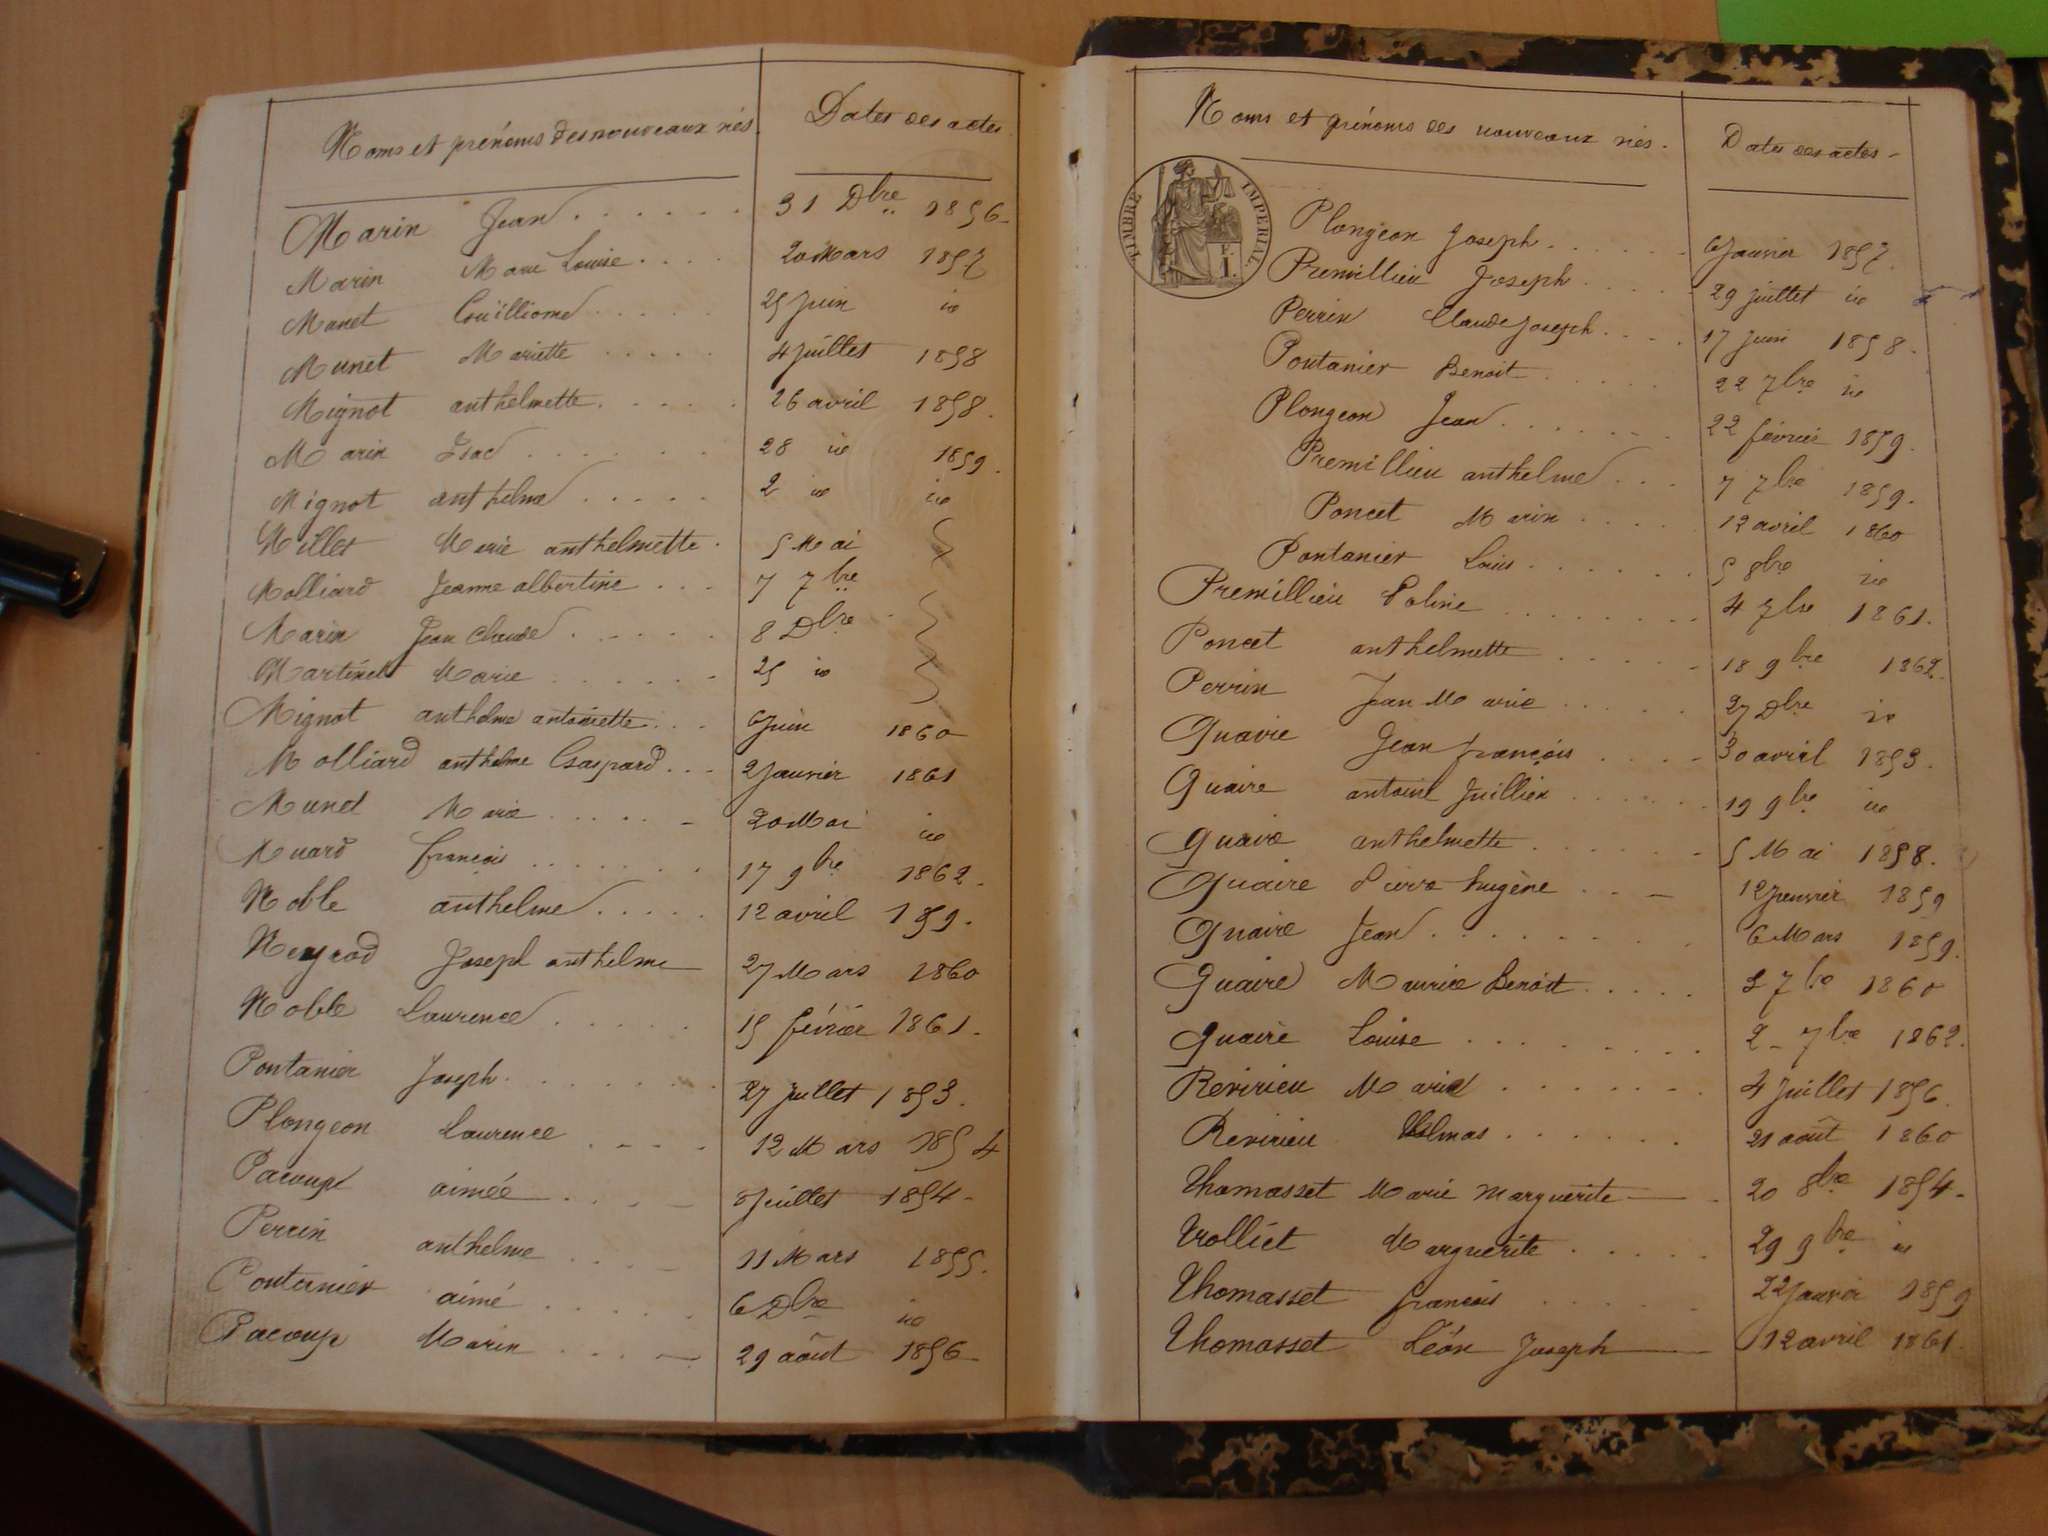 Noms et prénoms des nouveaux nés. Dates des actes
Marin Jean 31 Dbre 1856
Marin Marie Louise 20 Mars 1857
Manet 25 Juin id
Munet Mariette 4 Juillet 1858
Mignot anthelmette 26 avril 1858.
Marin Isac 28 id 1859.
Mignot anthelme 2 id id
Millet Marie anthelmette 5 Mai
Molliard Jeanne albertine 7 7bre
Marin Jean Claude 8 Dbre
Martinet Marie 25 id
Mignot anthelme antoinette 6 Juin 1860
Molliard anthelme Gaspard 2 Janvier 1861
Munet Marie 20 Mai id
Muard françois 17 9bre 1862.
Noble anthelme 12 avril 1859.
Neyrod Joseph anthelme 27 Mars 1860
Noble Laurence 15 février 1861.
Pontanier Joseph 27 Juillet 1853.
Plongeon Laurence 12 Mars 1854
Pacoup aimée 8 Juillet 1854
Perrin anthelme 11 Mars 1855.
Pontanier aimé 6 Dbre id
Pacoup Marin 29 août 1856
Noms et prénoms des nouveaux nés. Dates des actes
TIMBRE IMPERIAL
F.
1.
Plongeon Joseph 6 Janvier 1857.
Premillieu Joseph 29 Juillet id
Perrin Claude Joseph 17 Juin 1858.
Pontanier Benoit 22 7bre id
Plongeon Jean 22 février 1859.
Premillieu anthelme 7 7bre 1859.
Poncet Marin 12 avril 1860
Pontanier Louis 5 8bre id
Premillieu Poline 4 7bre 1861.
Poncet anthelmette 18 9bre 1862.
Perrin Jean Marie 27 Dbre id
Quaire Jean françois 30 avril 1853.
Quaire antoine Juillien 19 9bre id
Quaire anthelmette 5 Mai 1858.
Quaire Pierre Eugène 12 Janvier 1859
Quaire Jean 6 Mars 1859.
Quaire Maurice Benoit 7bre 1860
Quaire Louise 2 7bre 1862.
Revirieu Marie 4 Juillet 1856.
Revirieu 21 août 1860
Thomasset Marie Marguerite 20 8bre 1854.
Trolliet Marguerite 29 9bre id
Thomasset françois 22 Janvier 1859
Thomasset Léon Joseph 12 avril 1861.